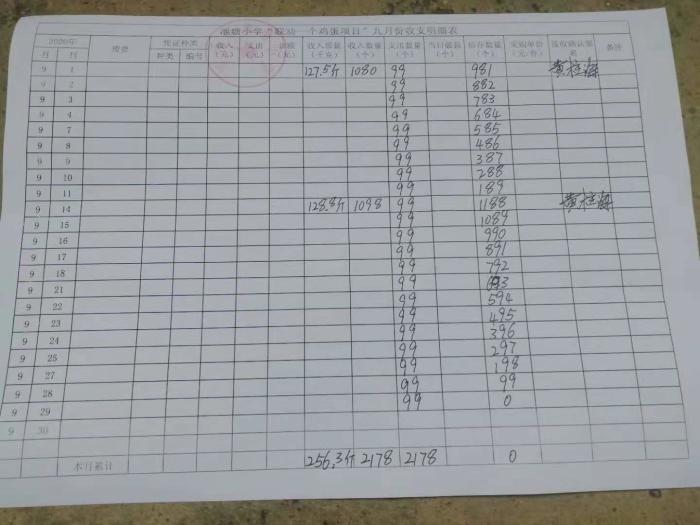 小学“ 一个鸡蛋项目”九月份收支明细表
2020年 摘要 凭证种类 收入（元） 支出（元） （元） 收入质量（千克） 收入数量（个） 支出数量（个） 当日破损（个） 结存数量（个） 采购单价（元/件） 签收确认签名 备注
月 日 种类 编号
9 1 127.5斤 1080 99 981 黄桂海
9 2 99 882
9 3 99 783
9 4 99 684
9 7 99 585
9 8 99 486
9 9 99 387
9 10 99 288
9 11 99 189
9 14 128.8斤 1098 99 1188 黄桂海
9 15 99 1089
9 16 99 990
9 17 99 891
9 18 99 792
9 21 99 693
9 22 99 594
9 23 99 495
9 24 99 396
9 25 99 297
9 27 99 198
9 28 99 99
9 29 99 0
9 30
本月累计 256.3斤 2178 2178 0